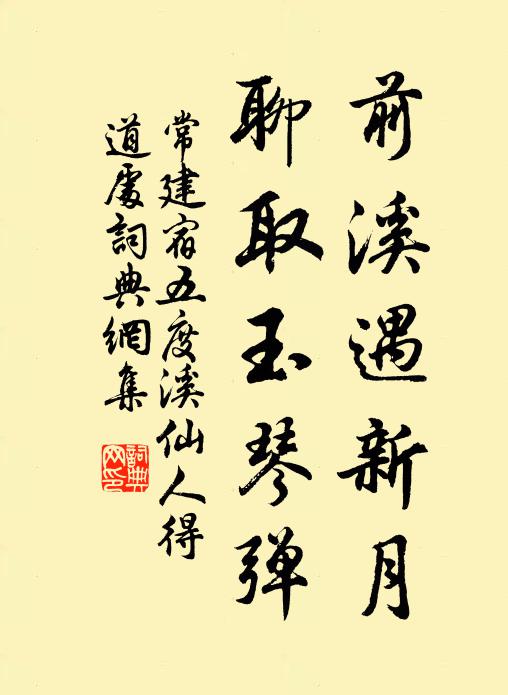 前溪遇新月
聊取玉琴弹
常建宿五度溪仙人得
道處詞典網集
詞典
网印